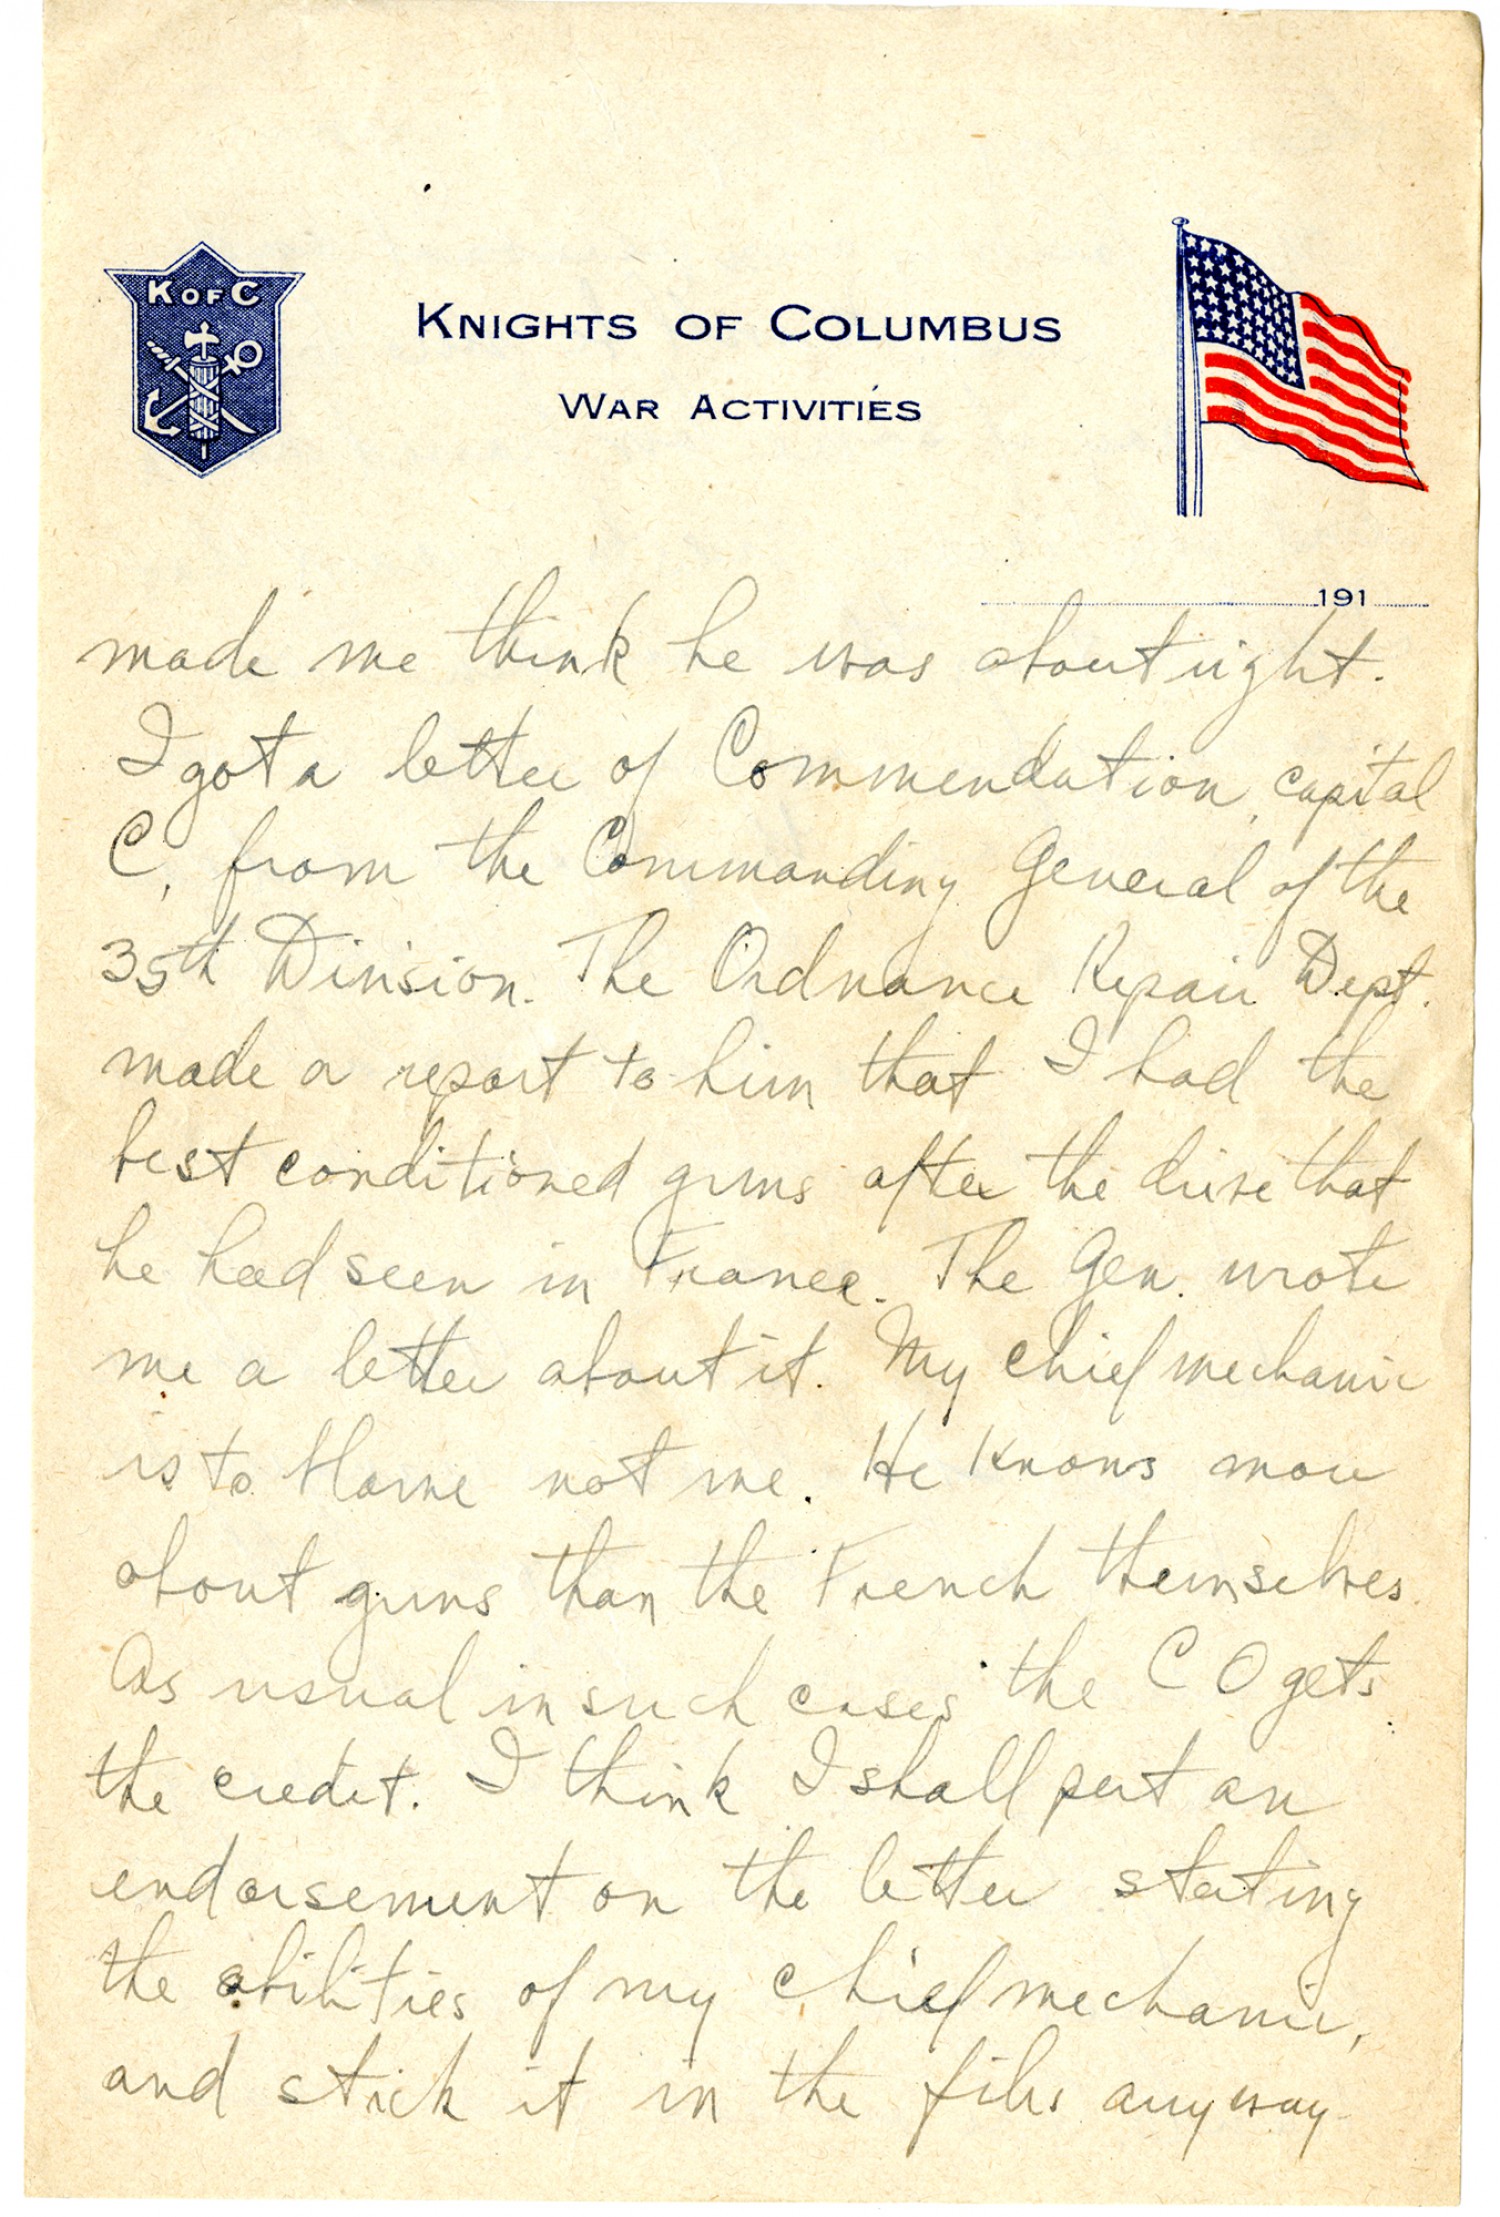 K OF C
KNIGHTS OF COLUMBUS
WAR ACTIVITIES
191
made me think he was about right.
I got a letter of Commendation, capital
C, from the Commanding General of the
35th Division. The Ordnance Repair Dept.
made a report to him that I had the
best conditioned guns after the drive that
he had seen in France. The Gen. wrote
me a letter about it. My chief mechanic
is to blame not me. He knows more
about guns than the French themselves.
As usual in such cases the C O gets
the credit. I think I shall put an
endorsement on the letter stating
the abilities of my chief mechanic,
and stick it in the files anyway